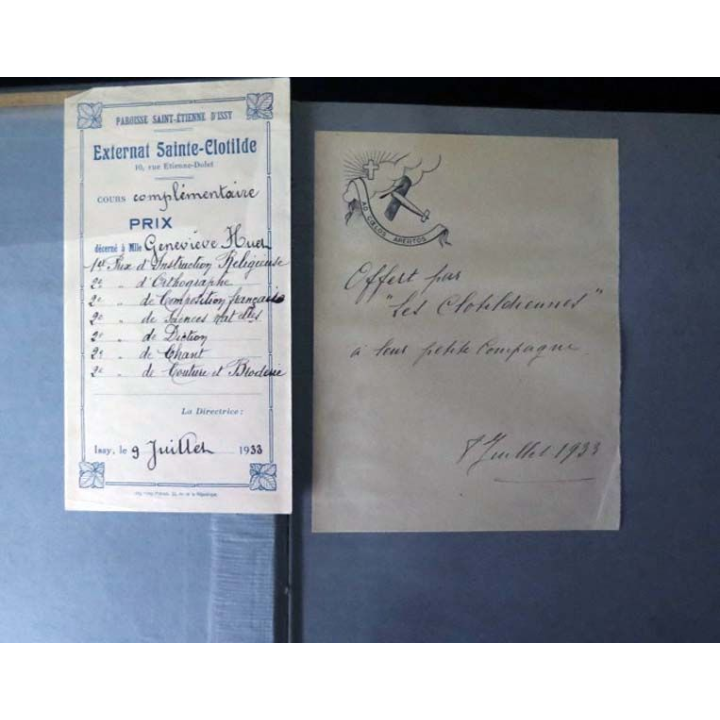 PAROISSE SAINT-ÉTIENNE D'ISSY
Externat Sainte-Clotilde
10, rue Etienne-Dolet
COURS complémentaire
PRIX
décerné à Mlle Geneviève Huet
1er Prix d'Instruction Religieuse
2e " d'Orthographe
2e " de Composition française
2e " de Sciences nat elles
2e " de Diction
2e " de Chant
2e " de Couture et Broderie
La Directrice:
Issy, le 9 Juillet 1933
AD CŒLOS APERTOS
Offert par
"Les Clotildiennes"
à leur petite Compagne
8 Juillet 1933